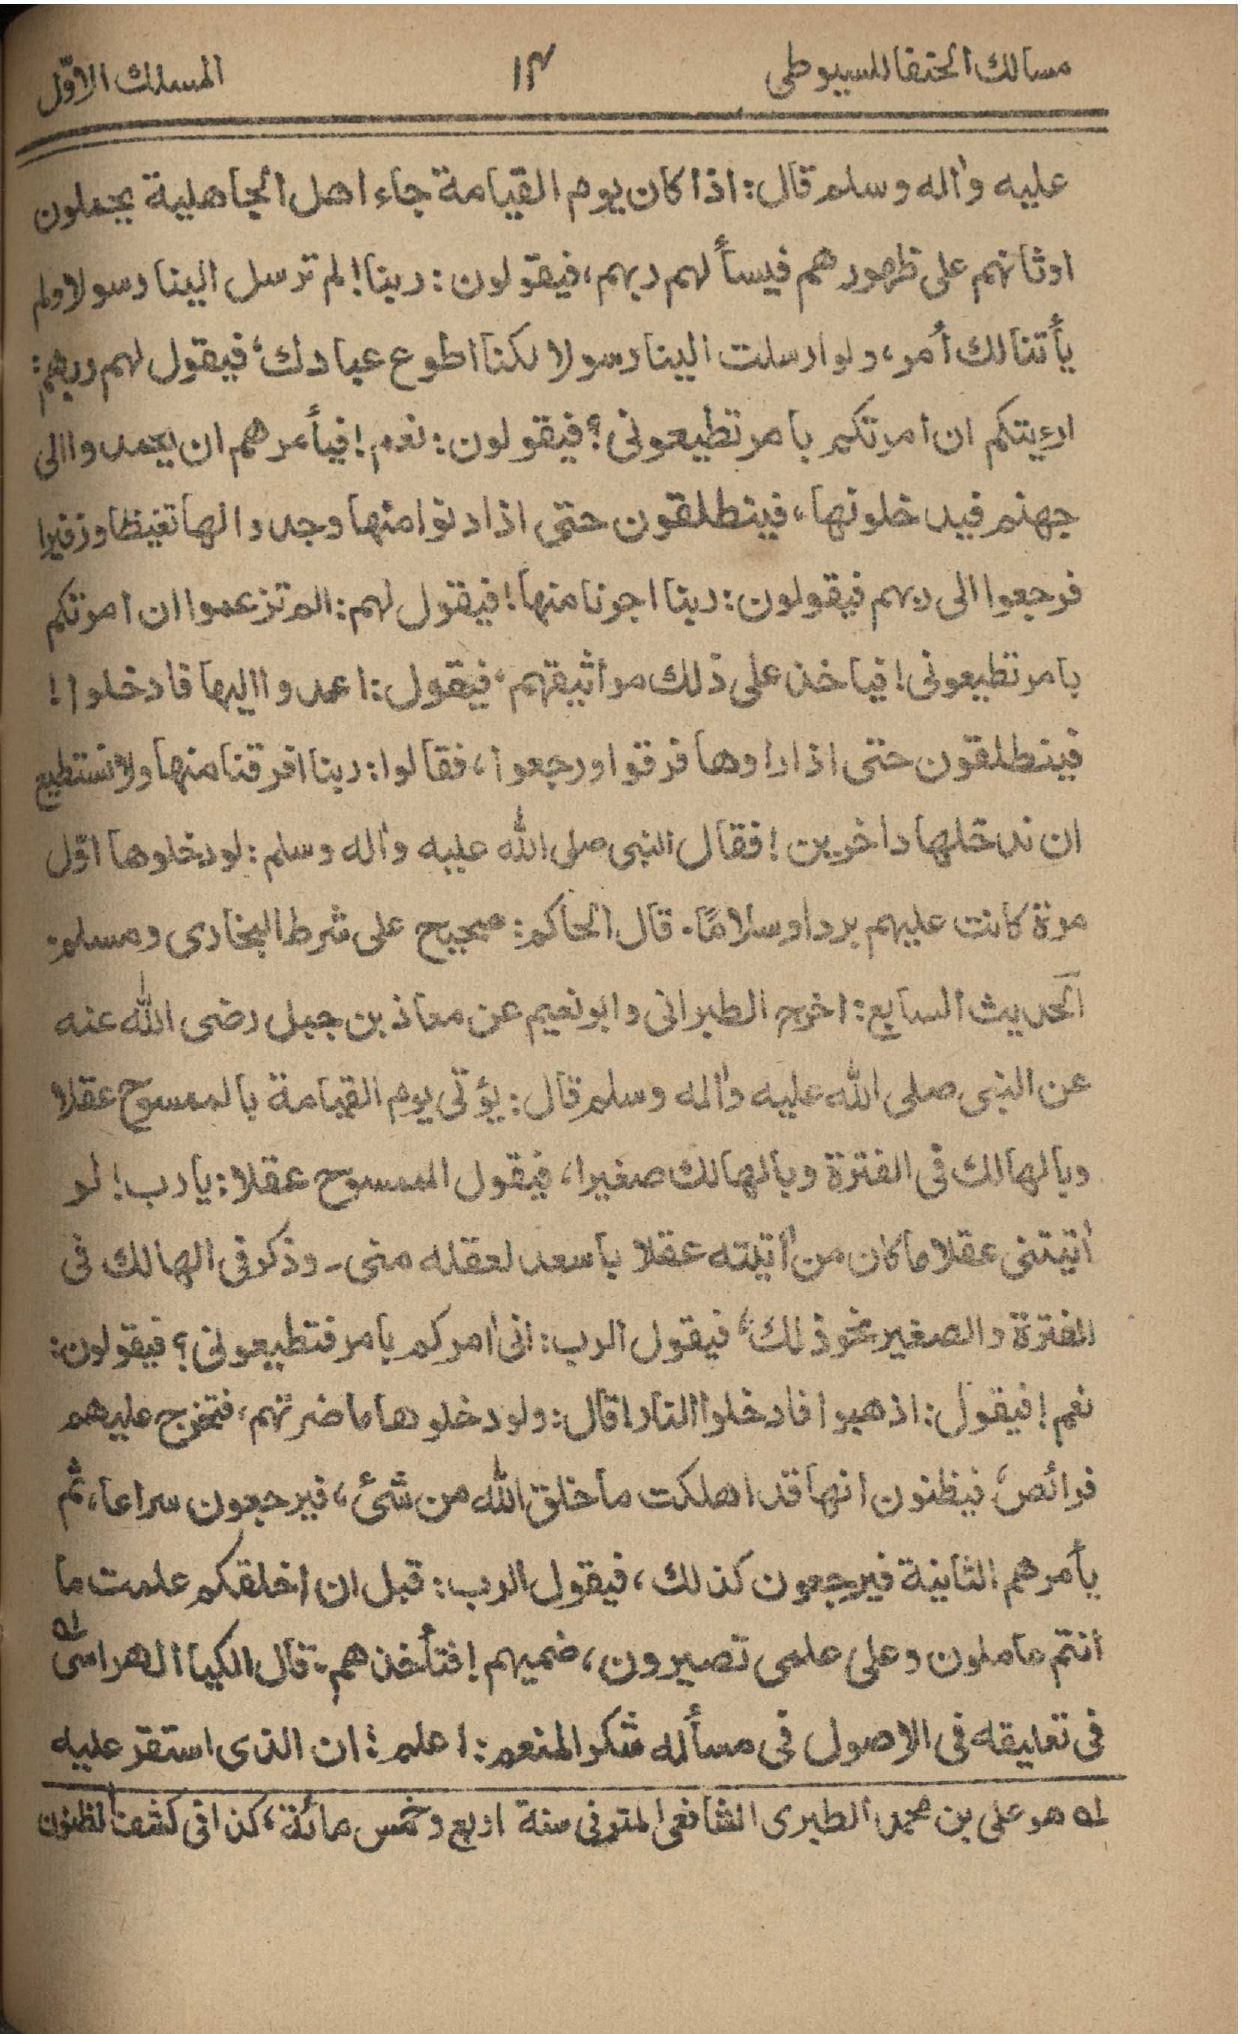 مسالك الحنفا للسيوطى ١٤ المسلك الاوّل
عليه واٰله وسلم قال: اذا كان يوم القيامة جاء اهل الجاهلية يحملون
اوثانهم على ظهورهم فيسألهم ربهم، فيقولون: ربنا! لم ترسل الينا رسولا ولم
يأتنا لك أمر، ولو ارسلت الينا رسولا لكنا اطوع عبادك، فيقول لهم ربهم:
ارءيتكم ان امرتكم بامر تطيعونى؟ فيقولون: نعم! فيأمرهم ان يعمدوا الى
جهنم فيدخلونها، فينطلقون حتى اذا دنوا منها وجدوا لها تغيظا وزفيرا
فرجعوا الى ربهم فيقولون: ربنا اجرنا منها! فيقول لهم: الم تزعموا ان امرتكم
بامر تطيعونى! فياخذ على ذلك مواثيقهم، فيقول: اعمدوا اليها فادخلوا!
فينطلقون حتى اذا راوها فرقوا ورجعوا، فقالوا: ربنا فرقنا منها ولا نستطيع
ان ندخلها داخرين! فقال النبى صلى الله عليه واٰله وسلم: لو دخلوها اوّل
مرة كانت عليهم بردا وسلامًا۔ قال الحاكم: صحيح على شرط البخارى ومسلم۔
الحديث السابع: اخرج الطبرانى وابو نعيم عن معاذ بن جبل رضى الله عنه
عن النبى صلى الله عليه واٰله وسلم قال: يؤتى يوم القيامة بالممسوح عقلا
وبالهالك فى الفترة وبالهالك صغيرا، فيقول الممسوح عقلا: يا رب! لو
اٰتيتنى عقلا ما كان من اٰتيته عقلا باسعد لعقله منى۔ وذكر فى الهالك فى
الفترة والصغير نحو ذلك، فيقول الرب: انى اٰمركم بامر فتطيعونى؟ فيقولون:
نعم! فيقول: اذهبوا فادخلوا النار! قال: ولو دخلوها ما ضرتهم، فتخرج عليهم
فرائص، فيظنون انها قد اهلكت ما خلق الله من شئ، فيرجعون سراعا، ثم
يأمرهم الثانية فيرجعون كذلك، فيقول الرب: قبل ان اخلقكم علمت ما
انتم عاملون وعلى علمى تصيرون، ضميهم! فتأخذهم۔ قال الكيا الهراسى له
فى تعليقه فى الاصول فى مسألة شكر المنعم: اعلم: ان الذى استقر عليه
له هو على بن محمد الطبرى الشافعى المتوفى سنة اربع وخمس مائة، كذا فى كشف الظنون